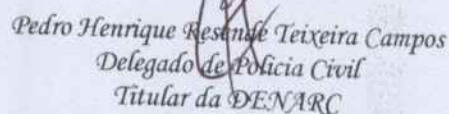 Pedro Henrique Resende Teixeira Campos
Delegado de Policia Civil
Titular da DENARC